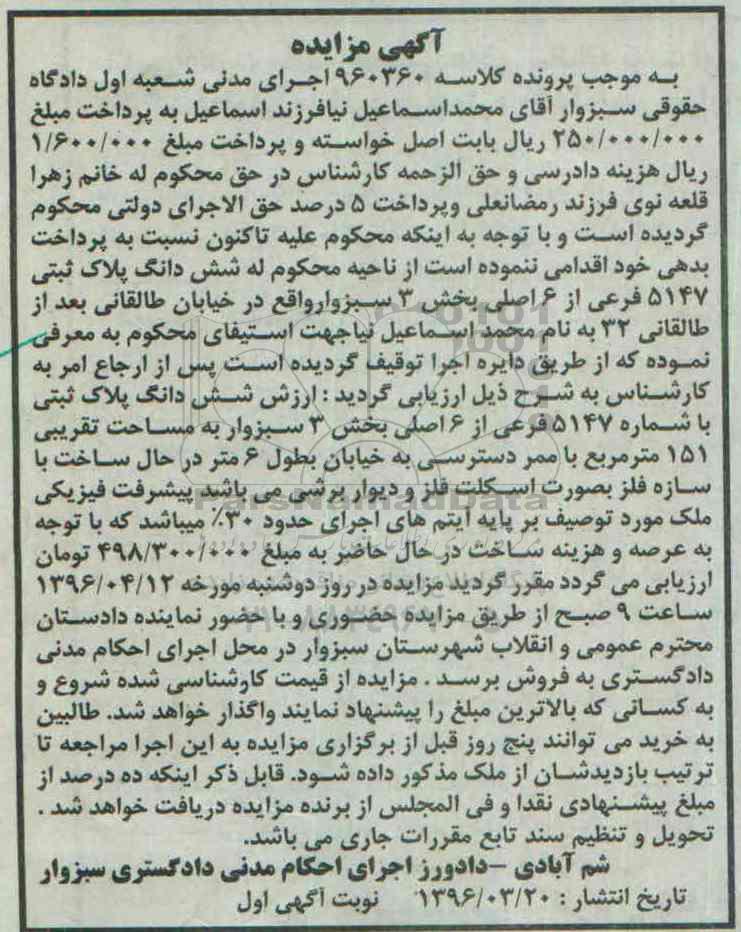 آگهی مزایده
به موجب پرونده کلاسه ۹۶۰۳۶۰ اجرای مدنی شعبه اول دادگاه
حقوقی سبزوار آقای محمداسماعیل نیافرزند اسماعیل به پرداخت مبلغ
۲۵۰/۰۰۰/۰۰۰ ریال بابت اصل خواسته و پرداخت مبلغ ۱/۶۰۰/۰۰۰
ریال هزینه دادرسی و حق الزحمه کارشناس در حق محکوم له خانم زهرا
قلعه نوی فرزند رمضانعلی وپرداخت ۵ درصد حق الاجرای دولتی محکوم
گردیده است و با توجه به اینکه محکوم علیه تاکنون نسبت به پرداخت
بدهی خود اقدامی ننموده است از ناحیه محکوم له شش دانگ پلاک ثبتی
۵۱۴۷ فرعی از ۶ اصلی بخش ۳ سبزوارواقع در خیابان طالقانی بعد از
طالقانی ۳۲ به نام محمد اسماعیل نیاجهت استیفای محکوم به معرفی
نموده که از طریق دایره اجرا توقیف گردیده است پس از ارجاع امر به
کارشناس به شرح ذیل ارزیابی گردید : ارزش شش دانگ پلاک ثبتی
با شماره ۵۱۴۷ فرعی از ۶ اصلی بخش ۳ سبزوار به مساحت تقریبی
۱۵۱ مترمربع با ممر دسترسی به خیابان بطول ۶ متر در حال ساخت با
سازه فلز بصورت اسکلت فلز و دیوار برشی می باشد پیشرفت فیزیکی
ملک مورد توصیف بر پایه آیتم های اجرای حدود ۳۰٪ میباشد که با توجه
به عرصه و هزینه ساخت در حال حاضر به مبلغ ۴۹۸/۳۰۰/۰۰۰ تومان
ارزیابی می گردد مقرر گردید مزایده در روز دوشنبه مورخه ۱۳۹۶/۰۴/۱۲
ساعت ۹ صبح از طریق مزایده حضوری و با حضور نماینده دادستان
محترم عمومی و انقلاب شهرستان سبزوار در محل اجرای احکام مدنی
دادگستری به فروش برسد . مزایده از قیمت کارشناسی شده شروع و
به کسانی که بالاترین مبلغ را پیشنهاد نمایند واگذار خواهد شد. طالبین
به خرید می توانند پنج روز قبل از برگزاری مزایده به این اجرا مراجعه تا
ترتیب بازدیدشان از ملک مذکور داده شود. قابل ذکر اینکه ده درصد از
مبلغ پیشنهادی نقدا و فی المجلس از برنده مزایده دریافت خواهد شد .
تحویل و تنظیم سند تابع مقررات جاری می باشد.
شم آبادی –دادورز اجرای احکام مدنی دادگستری سبزوار
تاریخ انتشار : ۱۳۹۶/۰۳/۲۰ نوبت آگهی اول
ParsNamadData